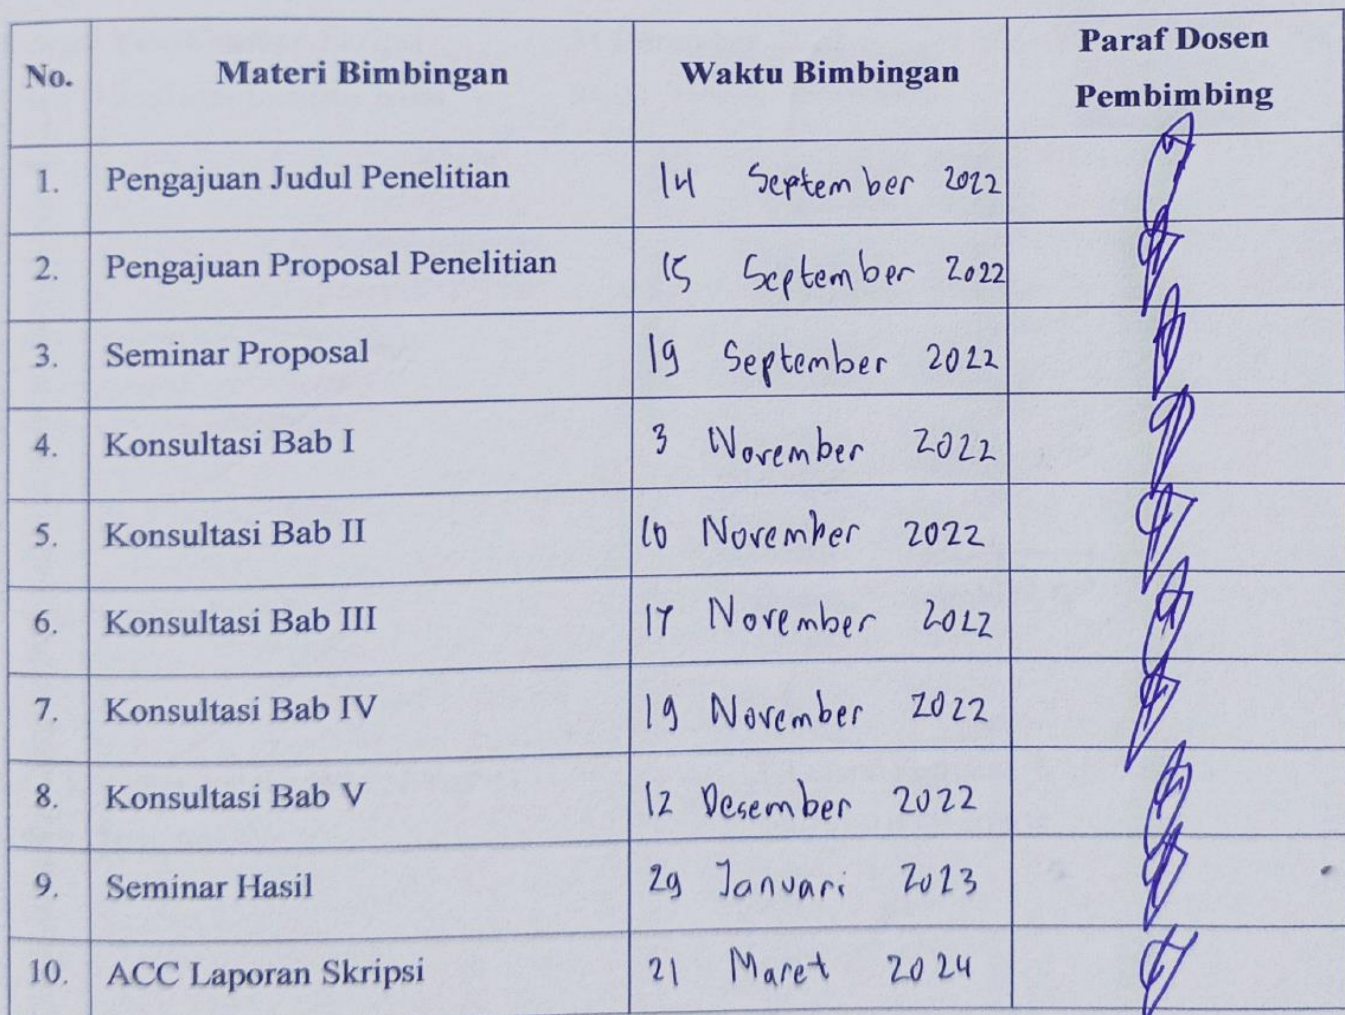 No. Materi Bimbingan Waktu Bimbingan Paraf Dosen
Pembimbing
1. Pengajuan Judul Penelitian 14 September 2022
2. Pengajuan Proposal Penelitian 15 September 2022
3. Seminar Proposal 19 September 2022
4. Konsultasi Bab I 3 November 2022
5. Konsultasi Bab II 10 November 2022
6. Konsultasi Bab III 17 November 2022
7. Konsultasi Bab IV 19 November 2022
8. Konsultasi Bab V 12 Desember 2022
9. Seminar Hasil 29 Januari 2023
10. ACC Laporan Skripsi 21 Maret 2024